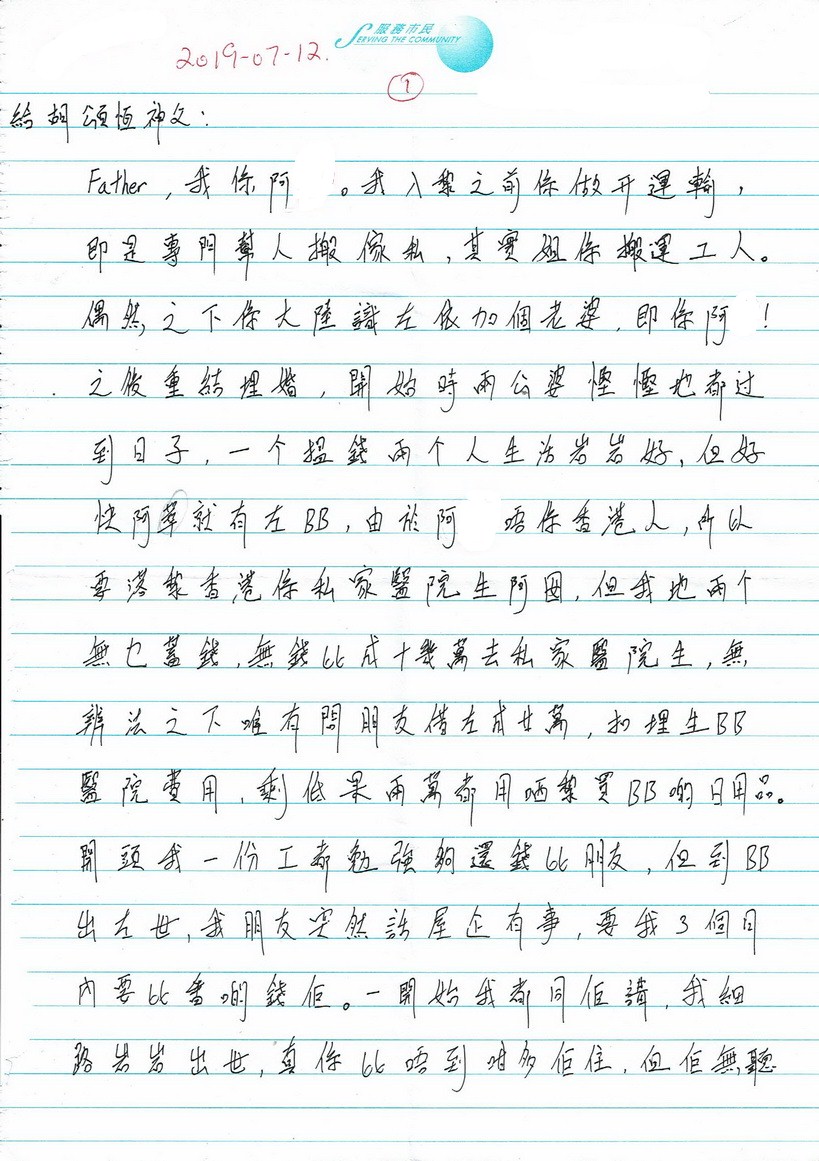 服務市民
SERVING THE COMMUNITY
2019-07-12.
1
給胡頌恆神父：
Father，我係阿 。我入黎之前係做开運輸，
即是專門幫人搬傢私，其實姐係搬運工人。
偶然之下係大陸識左依加個老婆，即係阿 ！
之後重結埋婚，開始時兩公婆慳慳地都过
到日子，一个搵錢兩个人生活岩岩好，但好
快阿 就有左BB，由於阿 唔係香港人，所以
要落黎香港係私家醫院生阿囡，但我地兩个
無乜蓋錢，無錢比成十幾萬去私家醫院生，無
辨法之下唯有問朋友借左成廿萬，扣埋生BB
醫院費用，剩低果兩萬都用晒黎買BB啲日用品。
開頭我一份工都勉強夠還錢比朋友，但到BB
出左世，我朋友突然話屋企有事，要我3個月
內要比番啲錢佢。一開始我都同佢講，我細
路岩岩出世，真係比唔到咁多佢住，但佢無聽